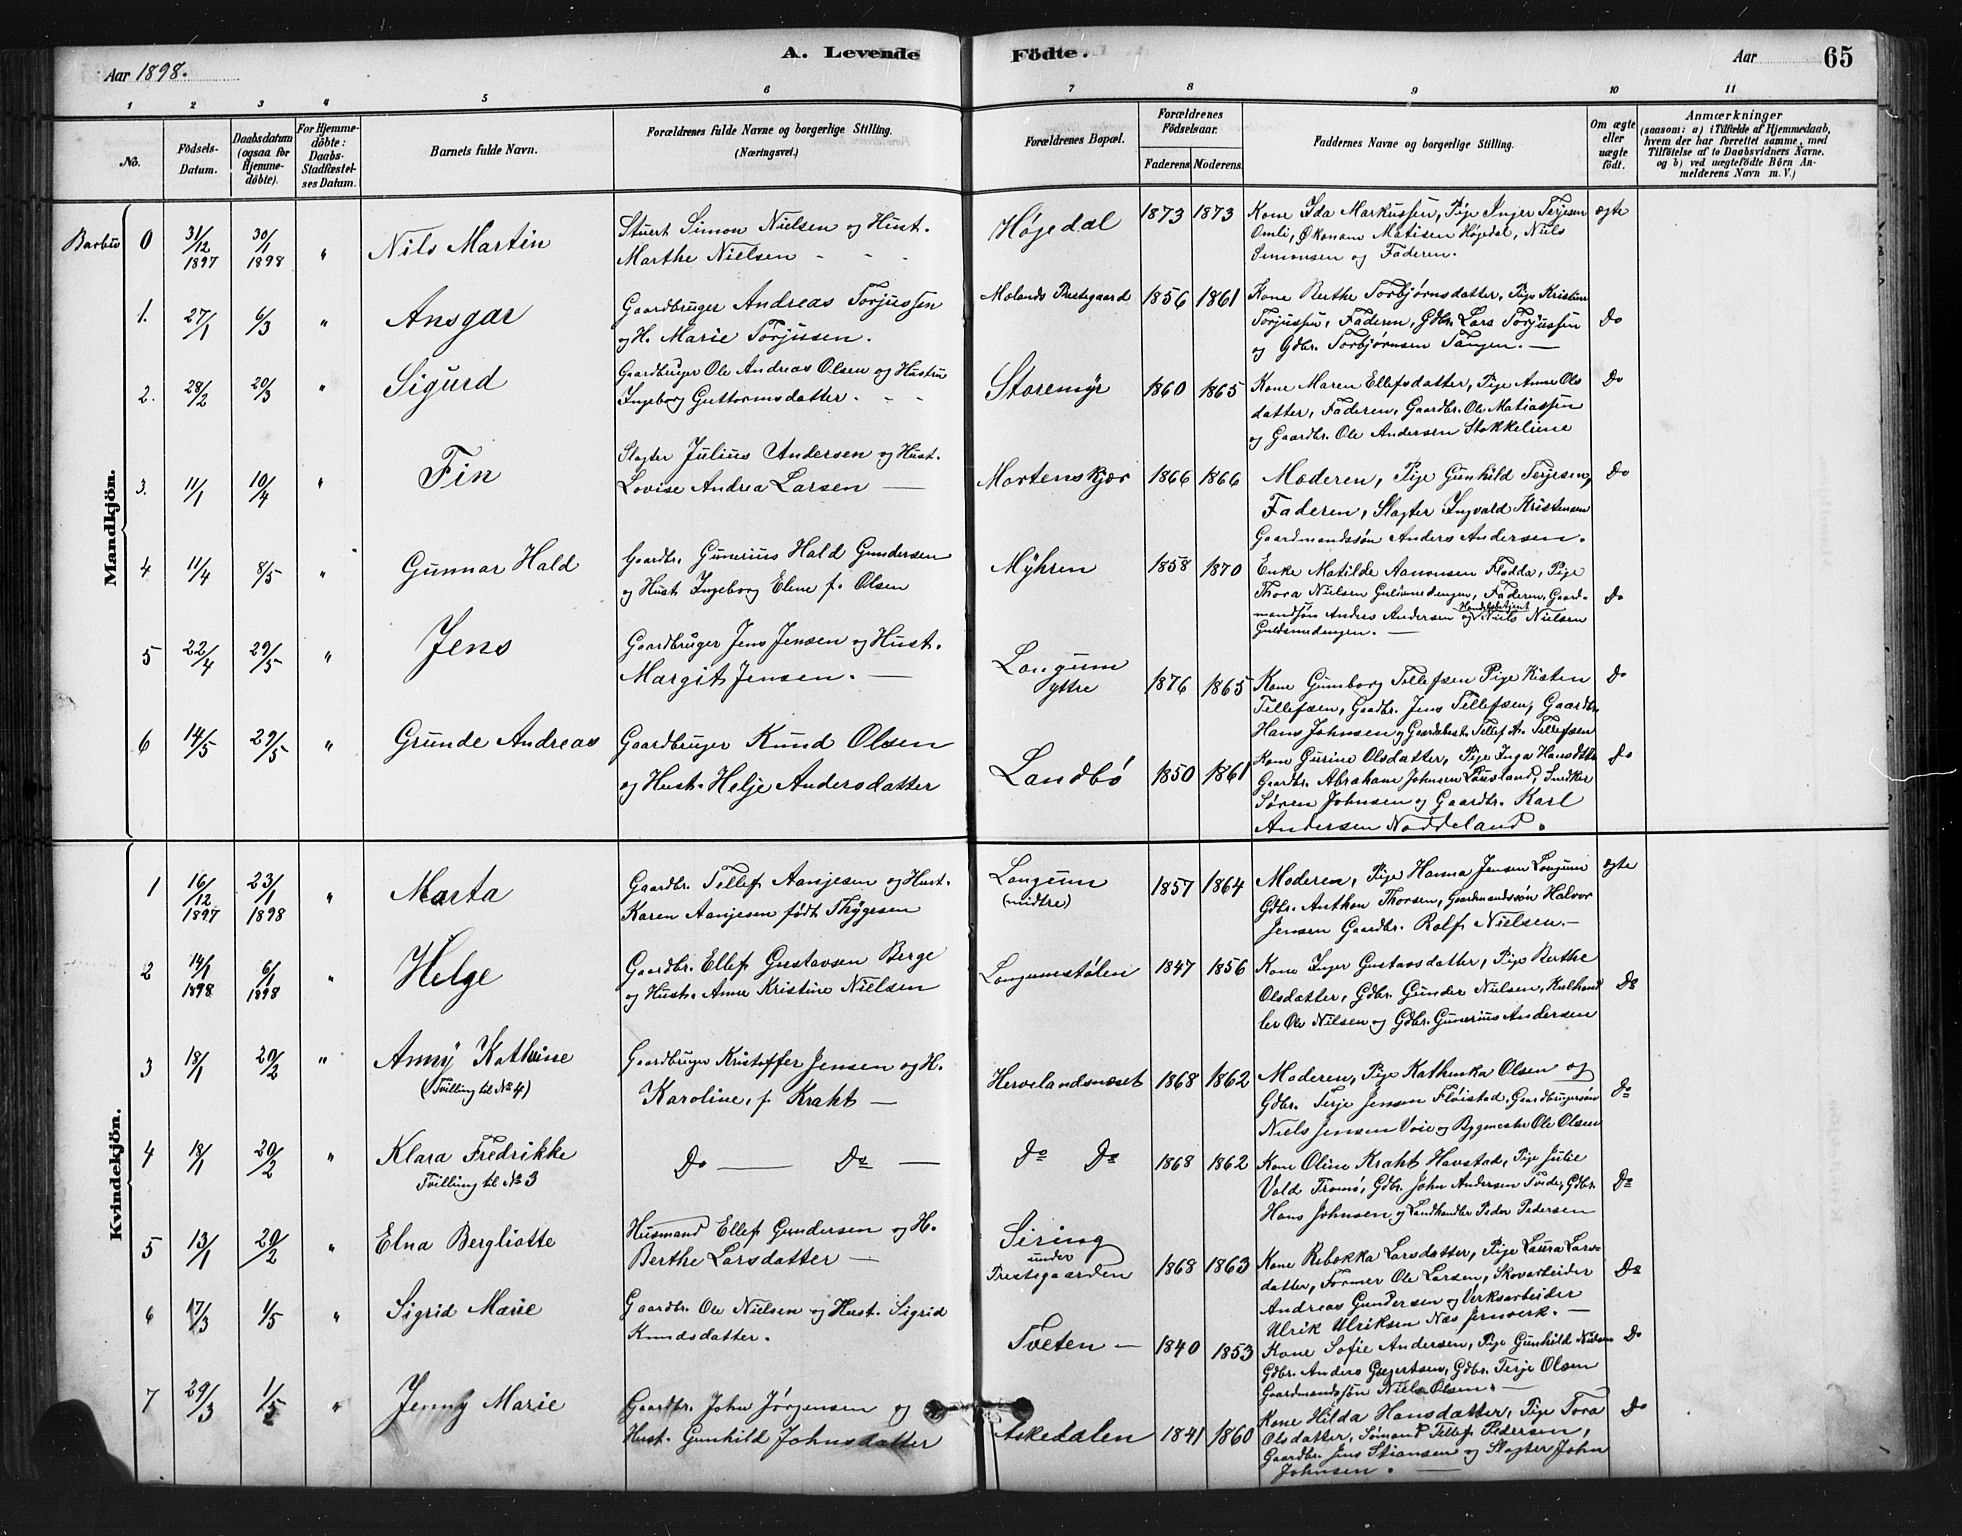 Aar 1898.
A. Levende Födte.
Aar
65
1 2 3 4 5 6 7 8 9 10 11
No.
Födsels-
Datum.
Daabsdatum
(ogsaa for
Hjemme-
döbte).
For Hjemme-
döbte:
Daabs-
Stadfæstel-
ses Datum.
Barnets fulde Navn.
Forældrenes fulde Navne og borgerlige Stilling.
(Næringsvei.)
Forældrenes Bopæl.
Forældrenes
Födselsaar.
Faderens. Moderens.
Faddernes Navne og borgerlige Stilling.
Om ægte
eller
uægte
födt.
Anmærkninger
(saasom: a) i Tilfælde af Hjemmedaab,
hvem der har forrettet samme, med
Tilföielse af to Daabsvidners Navne.
og b) ved uægtefödte Börn An-
melderens Navn m. V.)
Mandkjön.
Barbu 0 31/12 1897 30/1 1898 " Nils Martin
Stuert Simon Nielsen og Hust.
Marthe Nielsen - - -
Høgedal 1873 1873
Kone Ida Markussen, Pige Inger Terjesen
Omli, Økonom Matisen Høgedal, Niels
Simonsen og Faderen.
ægte
1. 27/1 6/3 " Ansgar
Gaardbruger Andreas Torjussen
og H. Marie Torjusen.
Molands Prestegaard 1856 1861
Kone Berthe Torbjørnsdatter, Pige Kristine
Torjussen, Faderen, Gdbr. Lars Torjussen
og Gdbr. Torbjørnsen Tangen. —
Do
2. 28/2 20/3 " Sigurd
Gaardbruger Ole Andreas Olsen og Hustru
Ingeborg Guttormsdatter. - -
Storemyr 1860 1865
Kone Maren Ellefsdatter, Pige Anne Ols
datter, Faderen, Gaardbr. Ole Matiassen
og Gaardbr. Ole Andersen Stokkeliene
Do
3. 11/1 10/4 " Fin
Slagter Julius Andersen og Hust.
Lovise Andrea Larsen —
Mortenskjær 1866 1866
Moderen, Pige Gunhild Terjesen,
Faderen, Slagter Ingvald Kristensen
Gaardmandssøn Anders Andersen.
Do
4 11/4 8/5 " Gunnar Hald
Gaardbr. Gunerius Hald Gundersen
og Hust Ingeborg Elene f. Olsen
Myhren 1858 1870
Enke Matilde Aanonsen Flødda, Pige
Thora Nielsen Guldsmedengen, Faderen, Gaard-
mandsøn Anders Andersen og Handelsbetjent Niels Nielsen
Guldsmedengen. —
Do
5 22/4 29/5 " Jens
Gaardbruger Jens Jensen og Hust.
Margit Jensen. —
Longum
yttre
1876 1865
Kone Gunborg Tellefsen Pige Kisten
Tellefsen, Gaardbr. Jens Tellefsen, Gaardbr.
Hans Johnsen og Tellef A. Tellefsen
Do
6 14/5 29/5 " Grunde Andreas
Gaardbruger Knud Olsen
og Hust. Helje Andersdatter
Landbö 1850 1861
Kone Gurine Olsdatter, Pige Inga Hansdttr
Gaardbr. Abraham Johnsen, Snedker
Søren Johnsen og Gaardbr. Karl
Andersen Noddeland.
Do
Kvindekjön.
1 16/12 1897 23/1 1898 " Marta
Gaardbr. Tellef Aanjesen og Hust.
Karen Aanjesen født Thygesen
Longum
(midtre)
1857 1864
Moderen, Pige Hanna Jensen Longum
Gdbr. Anthon Thorsen, Gaardmandssøn Halvor
Jensen Gaardbr. Rolf Nielsen. -
ægte
2 14/1 1898 6/1 1898 " Helge
Gaardbr. Ellef Gustavsen Berge
og Hust. Anne Kristine Nielsen
Longumstølen 1847 1856
Kone Inger Gustavsdatter, Pige Berthe
Olsdatter, Gdbr. Gunder Nielsen, Kulhand
ler Ole Nilsen og Gdbr. Gunerius Andersen
Do
3 18/1 20/2 " Anny Kathrine
(Tvilling til No 4)
Gaardbruger Kristoffer Jensen og H.
Karoline, f. Kraht —
Hervelandsnæset 1868 1862
Moderen, Pige Kathinka Olsen og
Gdbr. Terje Jensen Fløistad, Gaardbrugersøn
Niels Jensen Voie og Bygmester Ole Olsen
Do
4 18/1 20/2 " Klara Fredrikke
Tvilling til No 3
Do — Do —
Do Do 1868 1862
Kone Oline Kraht Havstad, Pige Julie
Vold Tromø, Gdbr. John Andersen Tvede, Gdbr.
Hans Johnsen og Landhandler Peder Pedersen
Do
5 13/1 20/2 " Elna Bergliotte
Husmand Ellef Gundersen og H.
Berthe Larsdatter —
Siring
under
Prestegaarden
1868 1863
Kone Rebekka Larsdatter, Pige Laura Lars-
datter, Former Ole Larsen, Skovarbeider
Andreas Gundersen og Verksarbeider
Ulrik Ulriksen Næs Jernverk. —
Do
6 17/3 1/5 " Sigrid Marie
Gaardbr. Ole Nielsen og Hust. Sigrid
Knudsdatter.
Tveten — 1840 1853
Kone Sofie Andersen, Pige Gunhild Nielsen
Gdbr. Anders Gjertsen, Gdbr. Terje Olsen
Gaardmandssøn Niels Olsen. —
Do
7 29/3 1/5 " Jenny Marie
Gaardbr. John Jørgensen og
Hust. Gunhild Johnsdatter
Askedalen 1841 1860
Kone Hilda Hansdatter, Pige Tora
Olsdatter, Sømand Tellef Pedersen,
Gaardbr. Jens Stiansen og Slagter John
Johnsen. —
Do